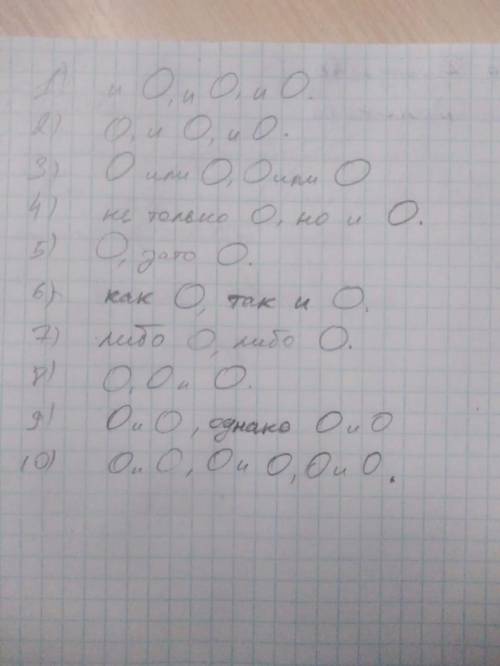 1) и О, и О, и О.
2) О, и О, и О.
3) О или О, О или О
4) не только О, но и О.
5) О, зато О.
6) как О, так и О.
7) либо О, либо О.
8) О, О и О.
9) О и О, однако О и О
10) О и О, О и О, О и О.